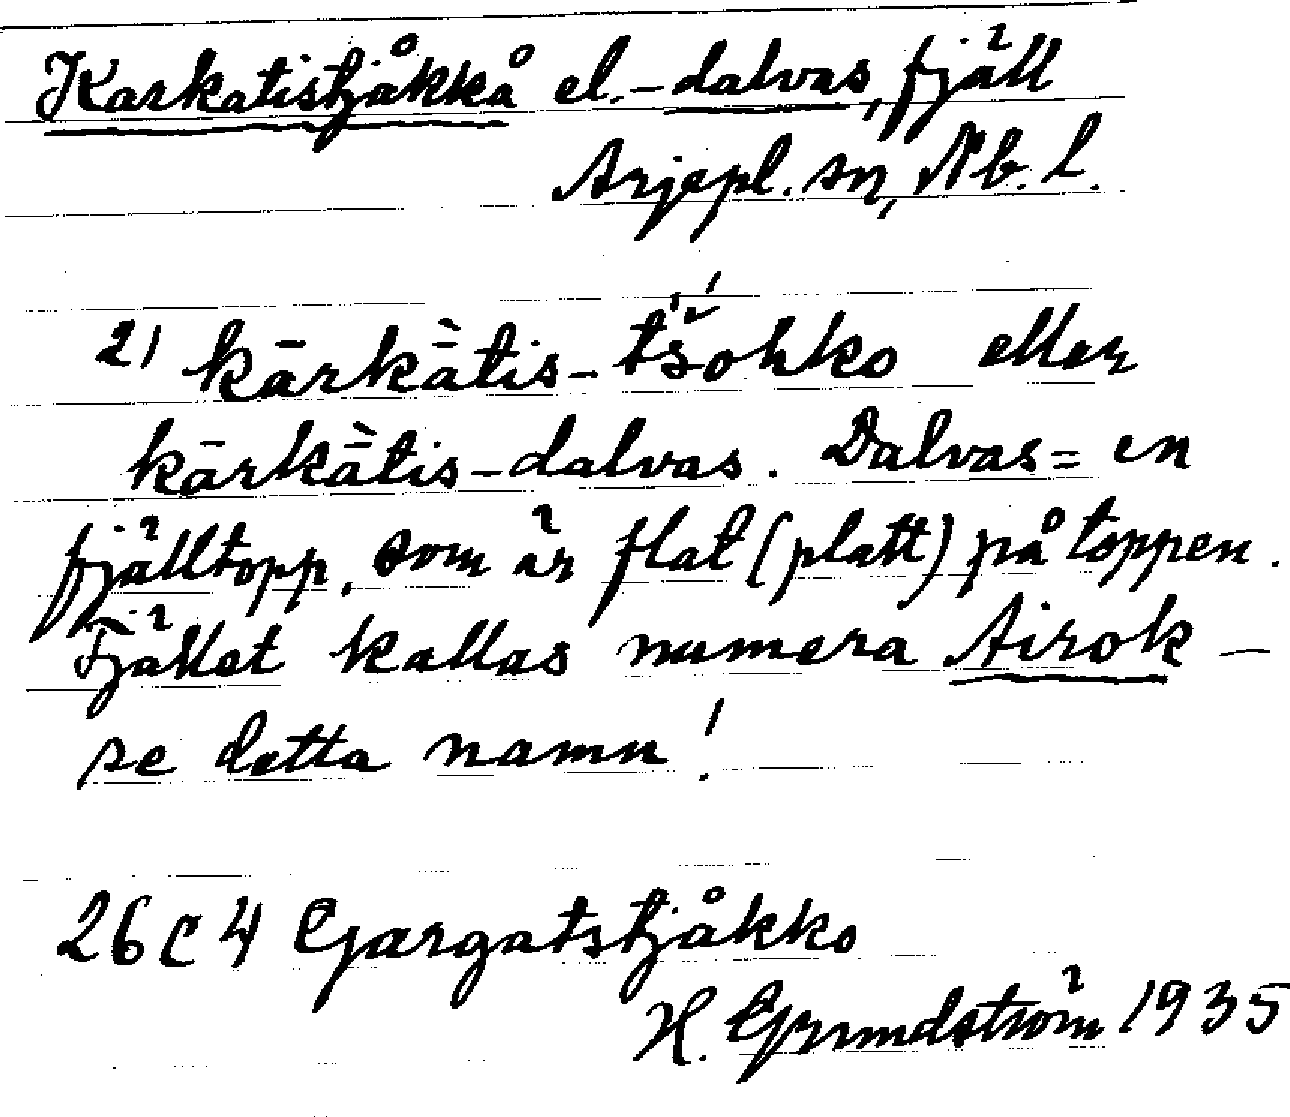 Karkatistjåkkå el. -dalvas, fjäll
Arjepl. sn, Nb. L.
2) kārkā̀tis-tš́ohko eller
kārkā̀tis-dalvas. Dalvas = en
fjälltopp, som är flat (platt) på toppen.
Fjället kallas numera Airok –
se detta namn!
26 C 4 Gargatstjåkko
H. Grundström 1935